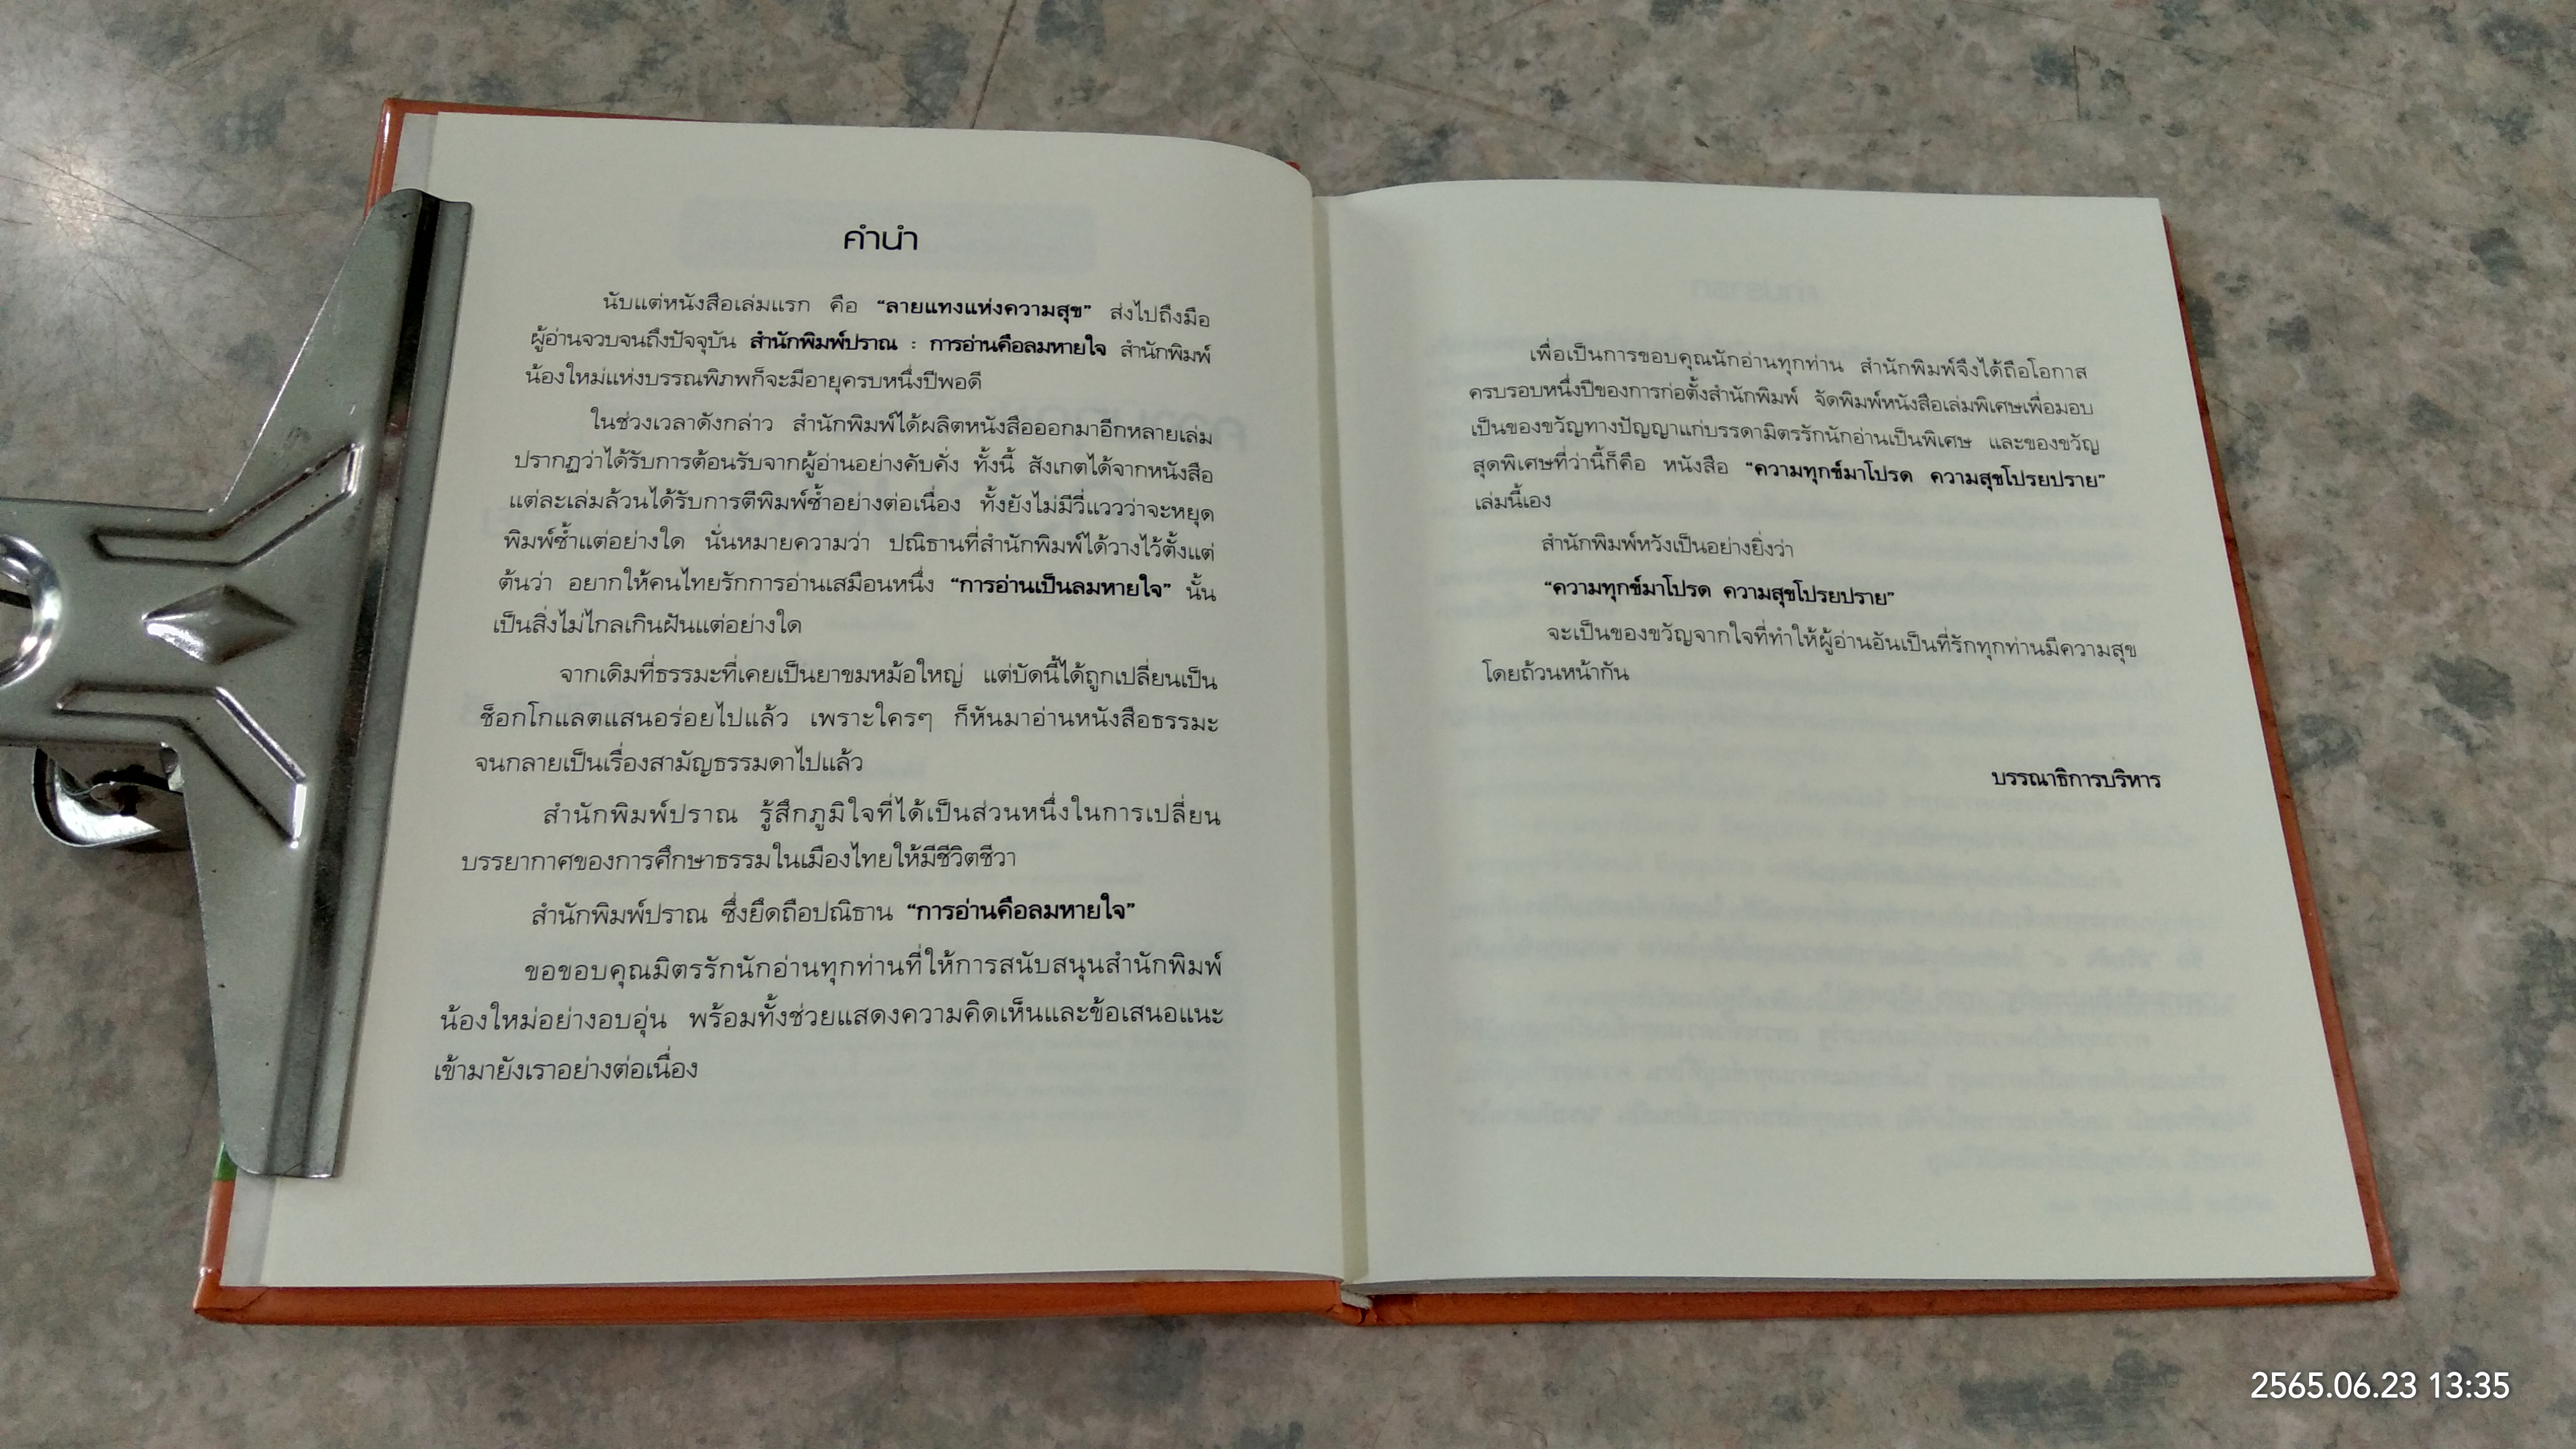 คำนำ
นับแต่หนังสือเล่มแรก คือ “ลายแทงแห่งความสุข” ส่งไปถึงมือ
ผู้อ่านจวบจนถึงปัจจุบัน สำนักพิมพ์ปราณ : การอ่านคือลมหายใจ สำนักพิมพ์
น้องใหม่แห่งบรรณพิภพก็จะมีอายุครบหนึ่งปีพอดี
ในช่วงเวลาดังกล่าว สำนักพิมพ์ได้ผลิตหนังสือออกมาอีกหลายเล่ม
ปรากฏว่าได้รับการต้อนรับจากผู้อ่านอย่างคับคั่ง ทั้งนี้ สังเกตได้จากหนังสือ
แต่ละเล่มล้วนได้รับการตีพิมพ์ซ้ำอย่างต่อเนื่อง ทั้งยังไม่มีวี่แววว่าจะหยุด
พิมพ์ซ้ำแต่อย่างใด นั่นหมายความว่า ปณิธานที่สำนักพิมพ์ได้วางไว้ตั้งแต่
ต้นว่า อยากให้คนไทยรักการอ่านเสมือนหนึ่ง “การอ่านเป็นลมหายใจ” นั้น
เป็นสิ่งไม่ไกลเกินฝันแต่อย่างใด
จากเดิมที่ธรรมะที่เคยเป็นยาขมหม้อใหญ่ แต่บัดนี้ได้ถูกเปลี่ยนเป็น
ช็อกโกแลตแสนอร่อยไปแล้ว เพราะใครๆ ก็หันมาอ่านหนังสือธรรมะ
จนกลายเป็นเรื่องสามัญธรรมดาไปแล้ว
สำนักพิมพ์ปราณ รู้สึกภูมิใจที่ได้เป็นส่วนหนึ่งในการเปลี่ยน
บรรยากาศของการศึกษาธรรมในเมืองไทยให้มีชีวิตชีวา
สำนักพิมพ์ปราณ ซึ่งยึดถือปณิธาน “การอ่านคือลมหายใจ”
ขอขอบคุณมิตรรักนักอ่านทุกท่านที่ให้การสนับสนุนสำนักพิมพ์
น้องใหม่อย่างอบอุ่น พร้อมทั้งช่วยแสดงความคิดเห็นและข้อเสนอแนะ
เข้ามายังเราอย่างต่อเนื่อง
เพื่อเป็นการขอบคุณนักอ่านทุกท่าน สำนักพิมพ์จึงได้ถือโอกาส
ครบรอบหนึ่งปีของการก่อตั้งสำนักพิมพ์ จัดพิมพ์หนังสือเล่มพิเศษเพื่อมอบ
เป็นของขวัญทางปัญญาแก่บรรดามิตรรักนักอ่านเป็นพิเศษ และของขวัญ
สุดพิเศษที่ว่านี้ก็คือ หนังสือ “ความทุกข์มาโปรด ความสุขโปรยปราย”
เล่มนี้เอง
สำนักพิมพ์หวังเป็นอย่างยิ่งว่า
“ความทุกข์มาโปรด ความสุขโปรยปราย”
จะเป็นของขวัญจากใจที่ทำให้ผู้อ่านอันเป็นที่รักทุกท่านมีความสุข
โดยถ้วนหน้ากัน
บรรณาธิการบริหาร
2565.06.23 13:35